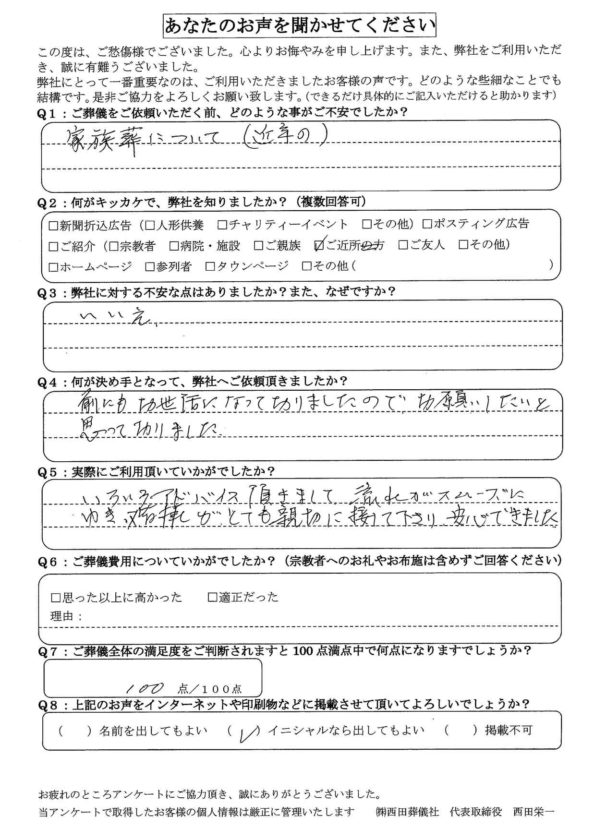 あなたのお声を聞かせてください
この度は、ご愁傷様でございました。心よりお悔やみを申し上げます。また、弊社をご利用いただ
き、誠に有難うございました。
弊社にとって一番重要なのは、ご利用いただきましたお客様の声です。どのような些細なことでも
結構です。是非ご協力をよろしくお願い致します。（できるだけ具体的にご記入いただけると助かります）
Q１：ご葬儀をご依頼いただく前、どのような事がご不安でしたか？
家族葬について（近年の）
Q２：何がキッカケで、弊社を知りましたか？（複数回答可）
□新聞折込広告（□人形供養　□チャリティーイベント　□その他）□ポスティング広告
□ご紹介（□宗教者　□病院・施設　□ご親族　☑ご近所の方　□ご友人　□その他）
□ホームページ　□参列者　□タウンページ　□その他（　　　）
Q３：弊社に対する不安な点はありましたか？また、なぜですか？
いいえ、
Q４：何が決め手となって、弊社へご依頼頂きましたか？
前にもお世話になっておりましたのでお願いしたいと
思っておりました。
Q５：実際にご利用頂いていかがでしたか？
いろいろアドバイス頂きまして 流れがスムーズに
ゆき がとても親切に接して下さり 安心できました
Q６：ご葬儀費用についていかがでしたか？（宗教者へのお礼やお布施は含めずご回答ください）
□思った以上に高かった　□適正だった
理由：
Q７：ご葬儀全体の満足度をご判断されますと 100 点満点中で何点になりますでしょうか？
100 点/100点
Q８：上記のお声をインターネットや印刷物などに掲載させて頂いてよろしいでしょうか？
（　）名前を出してもよい　（✓）イニシャルなら出してもよい　（　）掲載不可
お疲れのところアンケートにご協力頂き、誠にありがとうございました。
当アンケートで取得したお客様の個人情報は厳正に管理いたします　㈱西田葬儀社　代表取締役　西田栄一